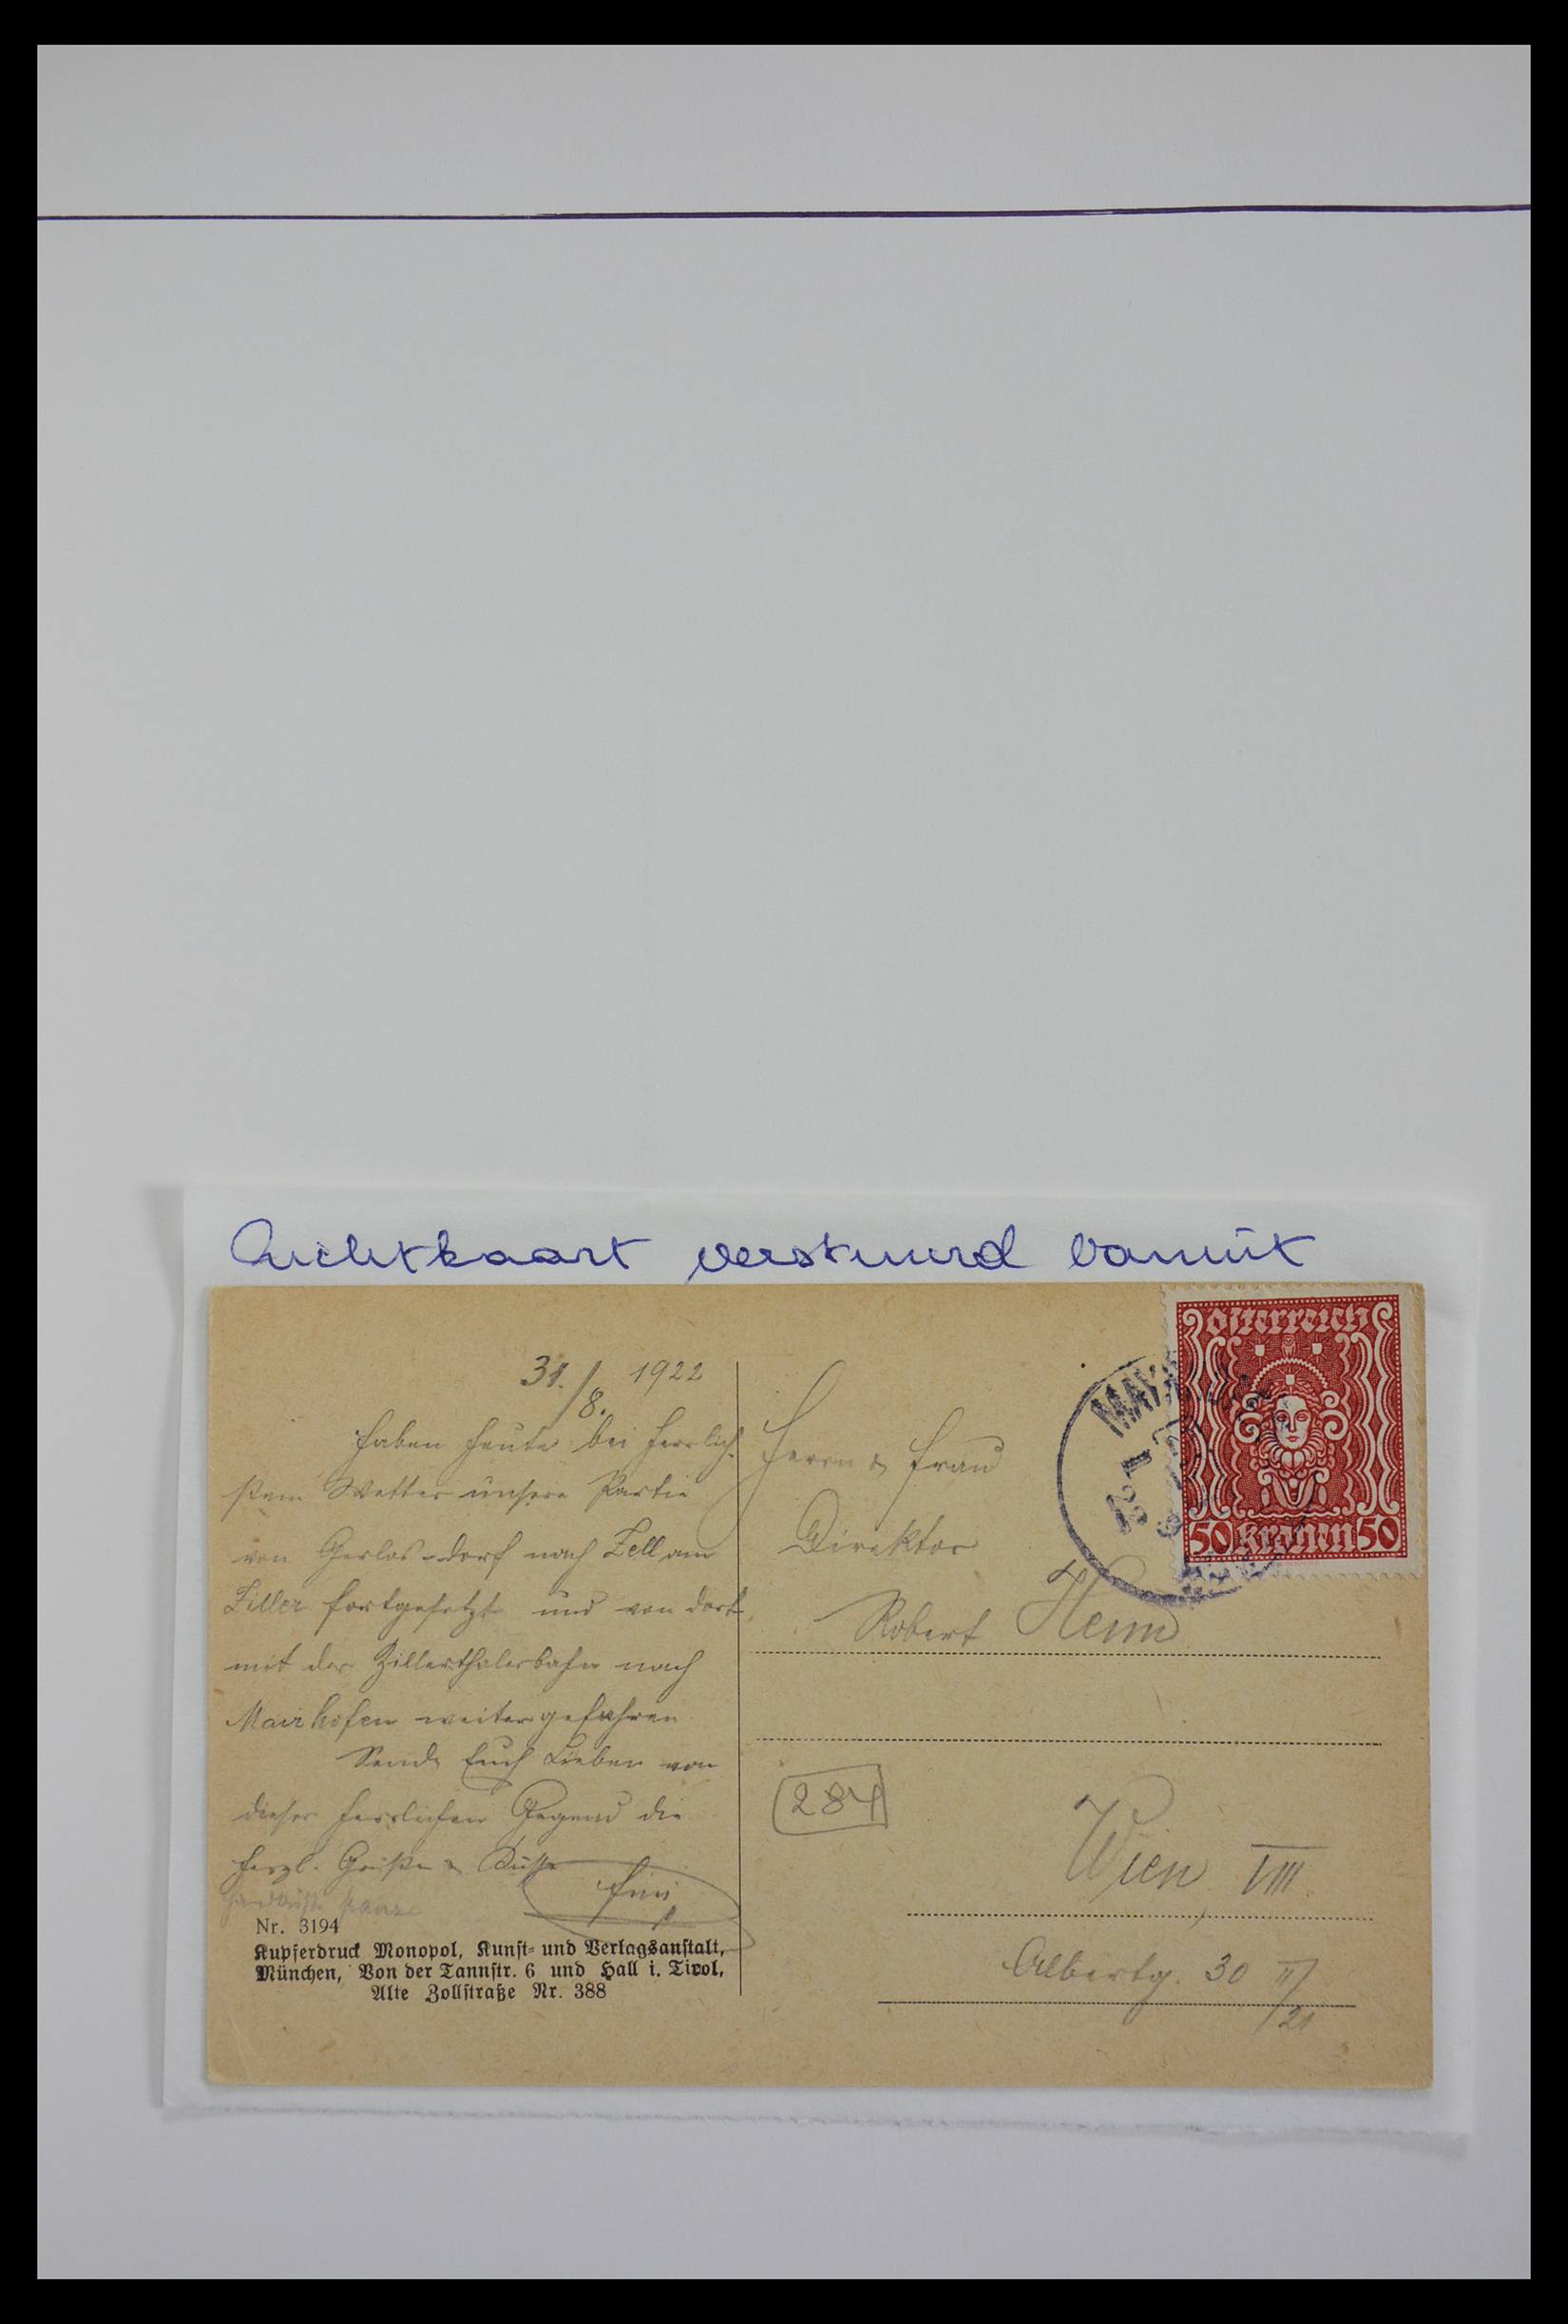 verstuurd vanuit
31./8. 1922
Haben heute bei herrlich-
stem Wetter unsere Partie
von Gerlos-dorf nach Zell am
Ziller fortgesetzt und von dort
mit der Zillerthalerbahn nach
Mairhofen weitergefahren
Sende Euch Lieben von
dieser herrlichen Gegend die
herzl. Grüße & Küsse
Nr. 3194
Kupferdruck Monopol, Kunst- und Verlagsanstalt,
München, Von der Tannstr. 6 und Hall i. Tirol,
Alte Zollstraße Nr. 388
Österreich
50 Kronen 50
Herrn & Frau
Direktor
Robert
284
Wien, VIII.
Albertg. 30 II/
/21